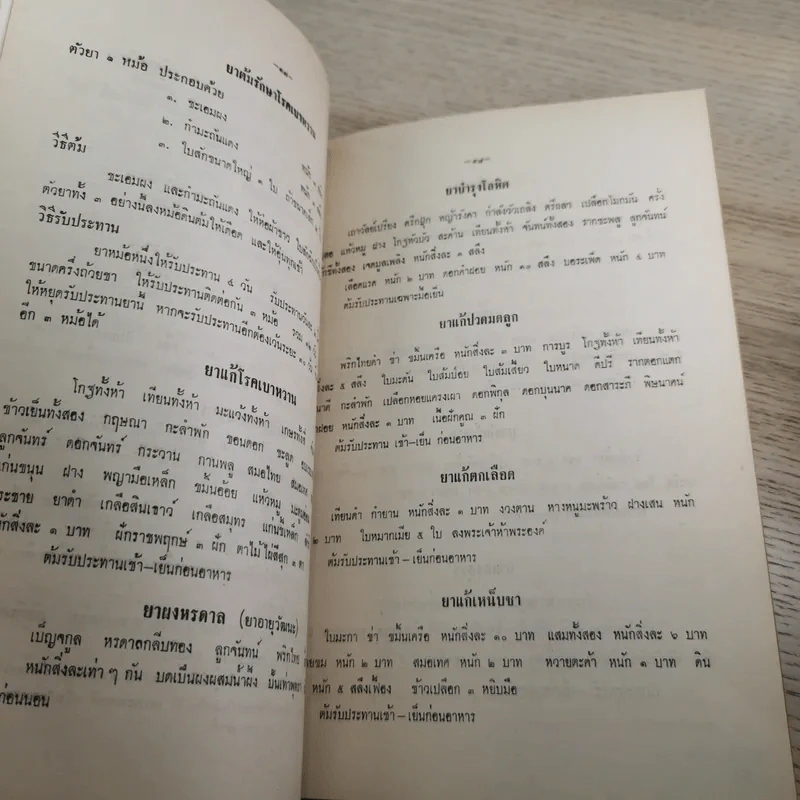 ยาต้มรักษาโรคเบาหวาน
ตัวยา ๑ หม้อ ประกอบด้วย
๑. ชะเอมผง
๒. กำมะถันแดง
๓. ใบสักขนาดใหญ่ ๓ ใบ
วิธีต้ม
ชะเอมผง และกำมะถันแดง ให้ห่อผ้าขาว
ตัวยาทั้ง ๓ อย่างนี้ลงหม้อดินต้มให้เดือด และให้อุ่นทุกเช้า
วิธีรับประทาน
ยาหม้อหนึ่งให้รับประทาน ๕ วัน รับประทาน
ขนาดครึ่งถ้วยชา ให้รับประทานติดต่อกัน ๓ หม้อ รวม
ให้หยุดรับประทานยานี้ หากจะรับประทานอีกต้องเว้นระยะ ๑๐
อีก ๓ หม้อได้
ยาแก้โรคเบาหวาน
โกฐทั้งห้า เทียนทั้งห้า มะแว้งทั้งห้า เกษรทั้งห้า
ข้าวเย็นทั้งสอง กฤษณา กะลำพัก ขอนดอก ชะลูด
ลูกจันทร์ ดอกจันทร์ กระวาน กานพลู สมอไทย สมอเทศ
แก่นขนุน ฝาง พญามือเหล็ก ขมิ้นอ้อย แห้วหมู
ยาดำ เกลือสินเธาว์ เกลือสมุทร แก่นขี้เหล็ก
หนักสิ่งละ ๑ บาท ฝักราชพฤกษ์ ๓ ฝัก ตาไม้ไผ่สีสุก ๑ ตา
ต้มรับประทานเช้า–เย็นก่อนอาหาร
ยาผงหรดาล (ยาอายุวัฒนะ)
เบ็ญจกูล หรดาลกลีบทอง ลูกจันทน์ พริกไทย
หนักสิ่งละเท่าๆ กัน บดเป็นผงผสมน้ำผึ้ง ปั้นเท่าพุทรา
ก่อนนอน
ยาบำรุงโลหิต
เถาวัลย์เปรียง ครึกฏูก หญ้ารังคา กำลังวัวเถลิง ตรีกลา เปลือกโมกมัน ครั่ง
แห้วหมู ฝาง โกฐหัวบัว สะค้าน เทียนทั้งห้า จันทน์ทั้งสอง รากชะพลู ลูกจันทน์
ทั้งสอง เจตมูลเพลิง หนักสิ่งละ ๑ สลึง
เลือดแรด หนัก ๒ บาท ดอกคำฝอย หนัก ๑๐ สลึง บอระเพ็ด หนัก ๕ บาท
ต้มรับประทานเฉพาะมื้อเย็น
ยาแก้ปวดมดลูก
พริกไทยดำ ข่า ขมิ้นเครือ หนักสิ่งละ ๓ บาท การบูร โกฐทั้งห้า เทียนทั้งห้า
สิ่งละ ๕ สลึง ใบมะดัน ใบส้มป่อย ใบส้มเสี้ยว ใบหนาด ดีปรี รากตอกแตก
กะลำพัก เปลือกหอยแครงเผา ดอกพิกุล ดอกบุนนาค ดอกสาระภี พิษนาศน์
หนักสิ่งละ ๑ บาท เนื้อฝักคูณ ๓ ฝัก
ต้มรับประทาน เช้า–เย็น ก่อนอาหาร
ยาแก้ตกเลือด
เทียนดำ กำยาน หนักสิ่งละ ๑ บาท งวงตาน หางหนูมะพร้าว ฝางเสน หนัก
๒ บาท ใบหมากเมีย ๕ ใบ ลงพระเจ้าห้าพระองค์
ต้มรับประทานเช้า–เย็นก่อนอาหาร
ยาแก้เหน็บชา
ใบมะกา ข่า ขมิ้นเครือ หนักสิ่งละ ๑๐ บาท แสมทั้งสอง หนักสิ่งละ ๖ บาท
หนัก ๒ บาท สมอเทศ หนัก ๒ บาท หวายตะค้า หนัก ๑ บาท ดิน
หนัก ๕ สลึงเฟื้อง ข้าวเปลือก ๓ หยิบมือ
ต้มรับประทานเช้า–เย็นก่อนอาหาร